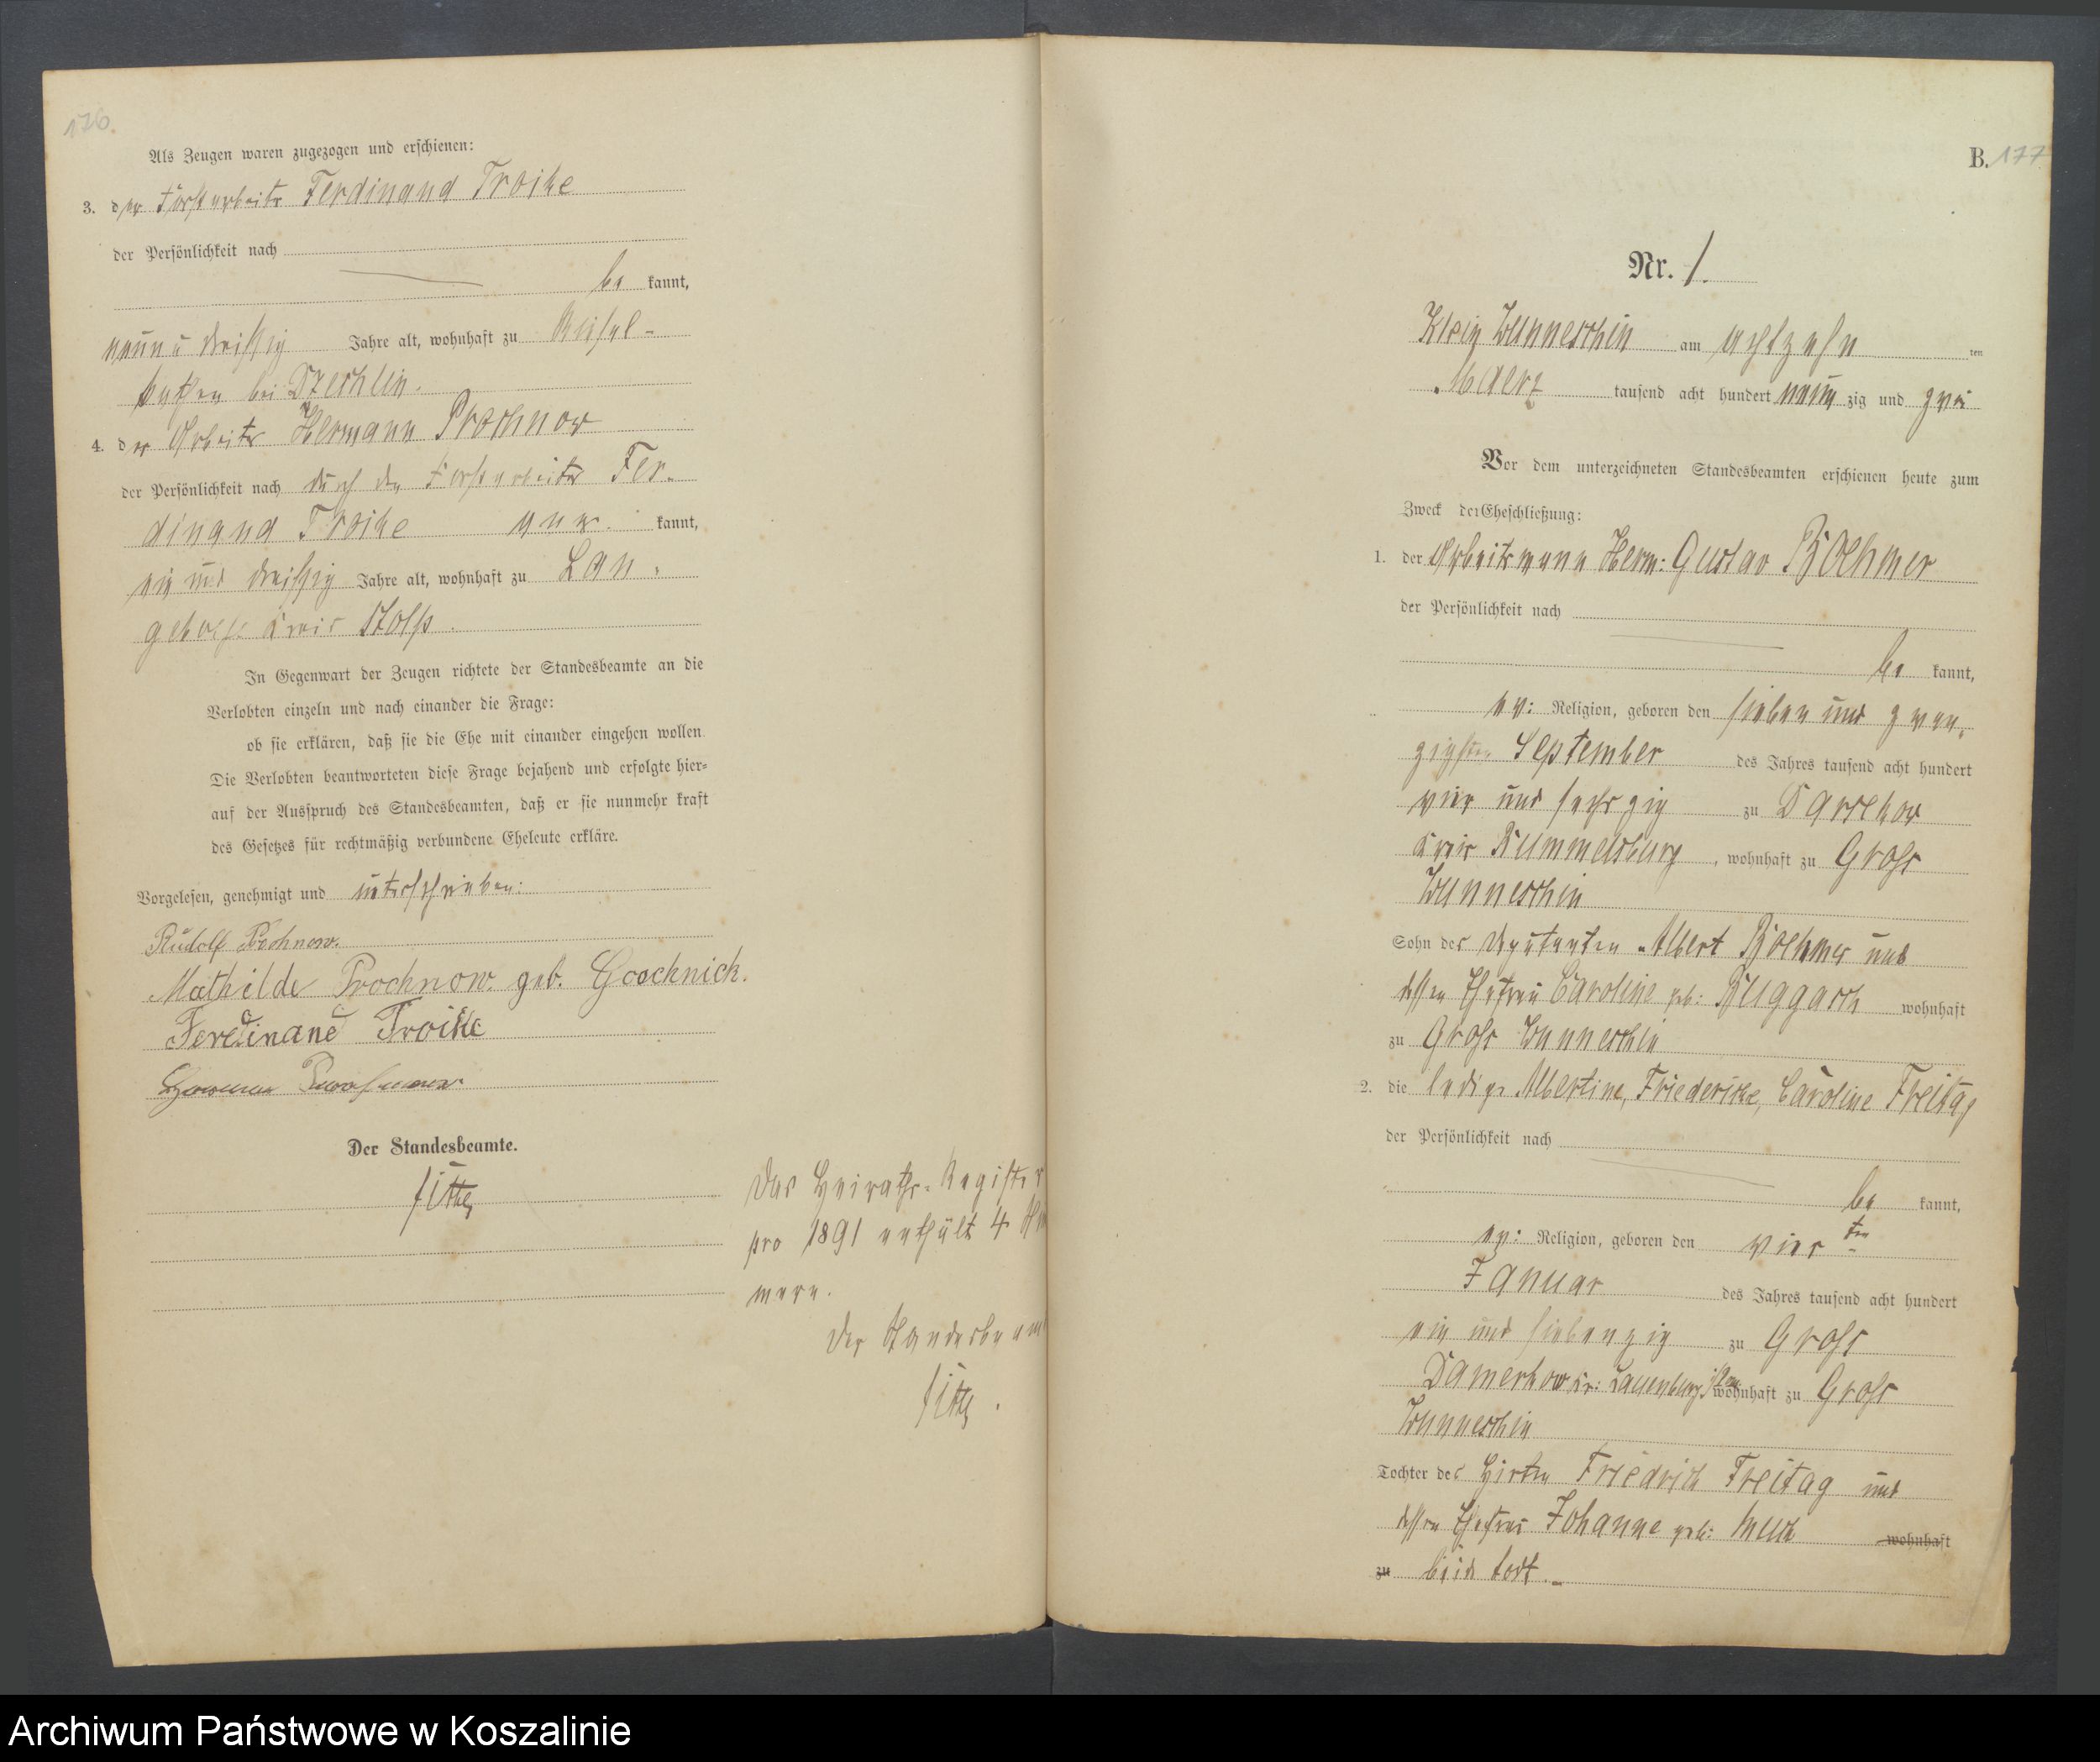 176.
Als Zeugen waren zugezogen und erschienen:
3. der Forstarbeiter Ferdinand Troike
der Persönlichkeit nach
be kannt,
neun u dreißig Jahre alt, wohnhaft zu
bei Dzechlin.
4. der Arbeiter Hermann Prochnow
der Persönlichkeit nach durch den Forstarbeiter Fer-
dinand Troike aner. kannt,
ein und dreißig Jahre alt, wohnhaft zu Lan-
geböse Kreis Stolp.
In Gegenwart der Zeugen richtete der Standesbeamte an die
Verlobten einzeln und nach einander die Frage:
ob sie erklären, daß sie die Ehe mit einander eingehen wollen.
Die Verlobten beantworteten diese Frage bejahend und erfolgte hier-
auf der Ausspruch des Standesbeamten, daß er sie nunmehr kraft
des Gesetzes für rechtmäßig verbundene Eheleute erkläre.
Vorgelesen, genehmigt und unterschrieben:
Rudolf Prochnow.
Mathilde Prochnow. geb. Goschnick.
Ferdinand Troike
Hermann Prochnow
Der Standesbeamte.
Das Heiraths-Register
pro 1891 enthält 4
mern.
Der Standesbeam
B. 177
Nr. 1.
Klein Wunneschin am achtzehn ten
Maerz tausend acht hundert neun zig und zwei
Vor dem unterzeichneten Standesbeamten erschienen heute zum
Zweck der Eheschließung:
1. der Arbeitsmann Herm: Gustav Boehmer
der Persönlichkeit nach
be kannt,
ev: Religion, geboren den sieben und zwan-
zigsten September des Jahres tausend acht hundert
vier und sechszig zu Darsekow
Kreis Rummelsburg, wohnhaft zu Groß
Wunneschin
Sohn des Deputanten Albert Boehmer und
dessen Ehefrau Caroline geb: Buggasch wohnhaft
zu Groß Wunneschin
2. die ledige Albertine, Friedericke, Caroline Freitag
der Persönlichkeit nach
be kannt,
ev: Religion, geboren den vier ten
Januar des Jahres tausend acht hundert
ein und siebenzig zu Groß
Damerkow Kr: Lauenburg i/Pom wohnhaft zu Groß
Wunneschin
Tochter des Hirten Friedrich Freitag und
dessen Ehefrau Johanne geb: Much wohnhaft
zu beide todt.-
Archiwum Państwowe w Koszalinie